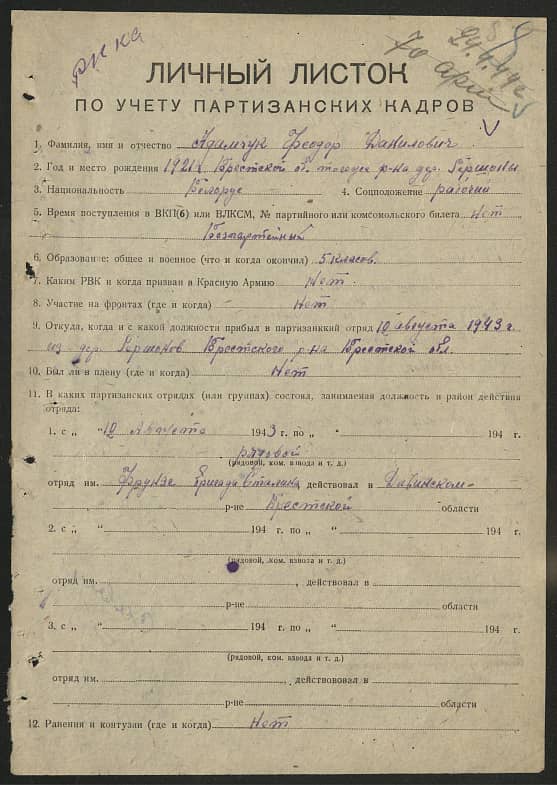 рика
70 арм
24.4.44г.
ЛИЧНЫЙ ЛИСТОК
ПО УЧЕТУ ПАРТИЗАНСКИХ КАДРОВ
1. Фамилия, имя и отчество Климчук Феодор Данилович
2. Год и место рождения 1921 г. Брестской об. р-на дер. Гершоны
3. Национальность Белорус 4. Соцположение рабочий
5. Время поступления в ВКП(б) или ВЛКСМ, № партийного или комсомольского билета Нет
Безпартейный
6. Образование: общее и военное (что и когда окончил) 5 класов.
7. Каким РВК и когда призван в Красную Армию Нет.
8. Участие на фронтах (где и когда) Нет
9. Откуда, когда и с какой должности прибыл в партизанкий отряд 10 августа 1943 г.
из дер. Гершонов Брестского р-на Брестской обл.
10. Был ли в плену (где и когда) Нет
11. В каких партизанских отрядах (или группах) состоял, занимаемая должность и район действия
отряда:
1. с „ “ 10 Августа 1943 г. по „ “ 194 г.
рядовой
(рядовой, ком. взвода и т. д.)
отряд им. Фрунзе бригады Сталина действовал в Дивинском
р-не Брестской области
2. с „ “ 194 г. по „ “ 194 г.
(рядовой, ком. взвоза и т. д.)
отряд им. , действовал в
р-не области
3. с „ “ 194 г. по „ “ 194 г.
(рядовой, ком. взвода и т. д.)
отряд им. , действововал в
р-не области
12. Ранения и контузии (где и когда) Нет